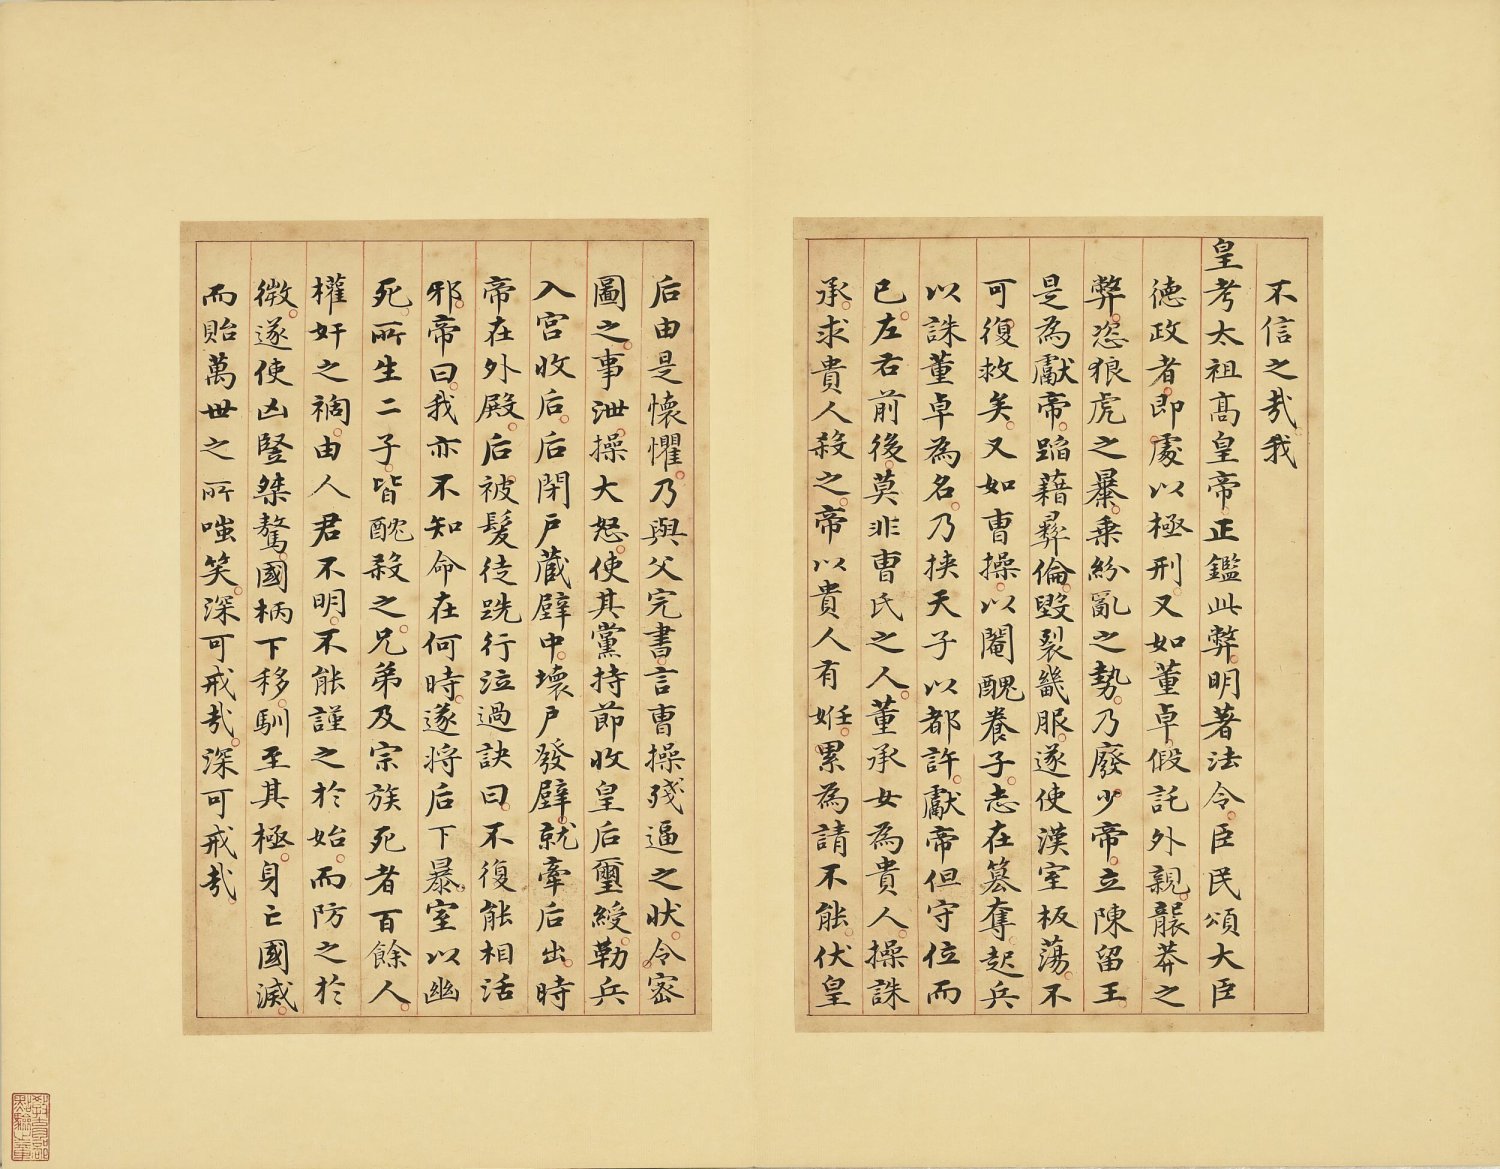 不信之哉我
皇考太祖高皇帝正鑑此弊明著法令臣民頌大臣
德政者即處以極刑又如董卓假託外親襲莽之
弊恣狼虎之暴乗紛亂之勢乃廢少帝立陳留王
是為獻帝蹈藉彛倫毀裂畿服遂使漢室板蕩不
可復救矣又如曹操以閹醜養子志在簒奪起兵
以誅董卓為名乃挟天子以都許獻帝但守位而
已左右前後莫非曹氏之人董承女為貴人操誅
承求貴人殺之帝以貴人有姙累為請不能伏皇
后由是懐懼乃與父完書言曹操殘逼之狀令宻
圖之事泄操大怒使其黨持節收皇后璽綬勒兵
入宮收后后閉戶蔵壁中壊戶發壁就牽后出時
帝在外殿后被髮徒跣行泣過訣曰不復能相活
邪帝曰我亦不知命在何時遂将后下暴室以幽
死所生二子皆酖殺之兄弟及宗族死者百餘人
權奸之禍由人君不明不能謹之於始而防之於
微遂使凶竪桀驁國柄下移馴至其極身亡國滅
而貽萬世之所嗤笑深可戒哉深可戒哉